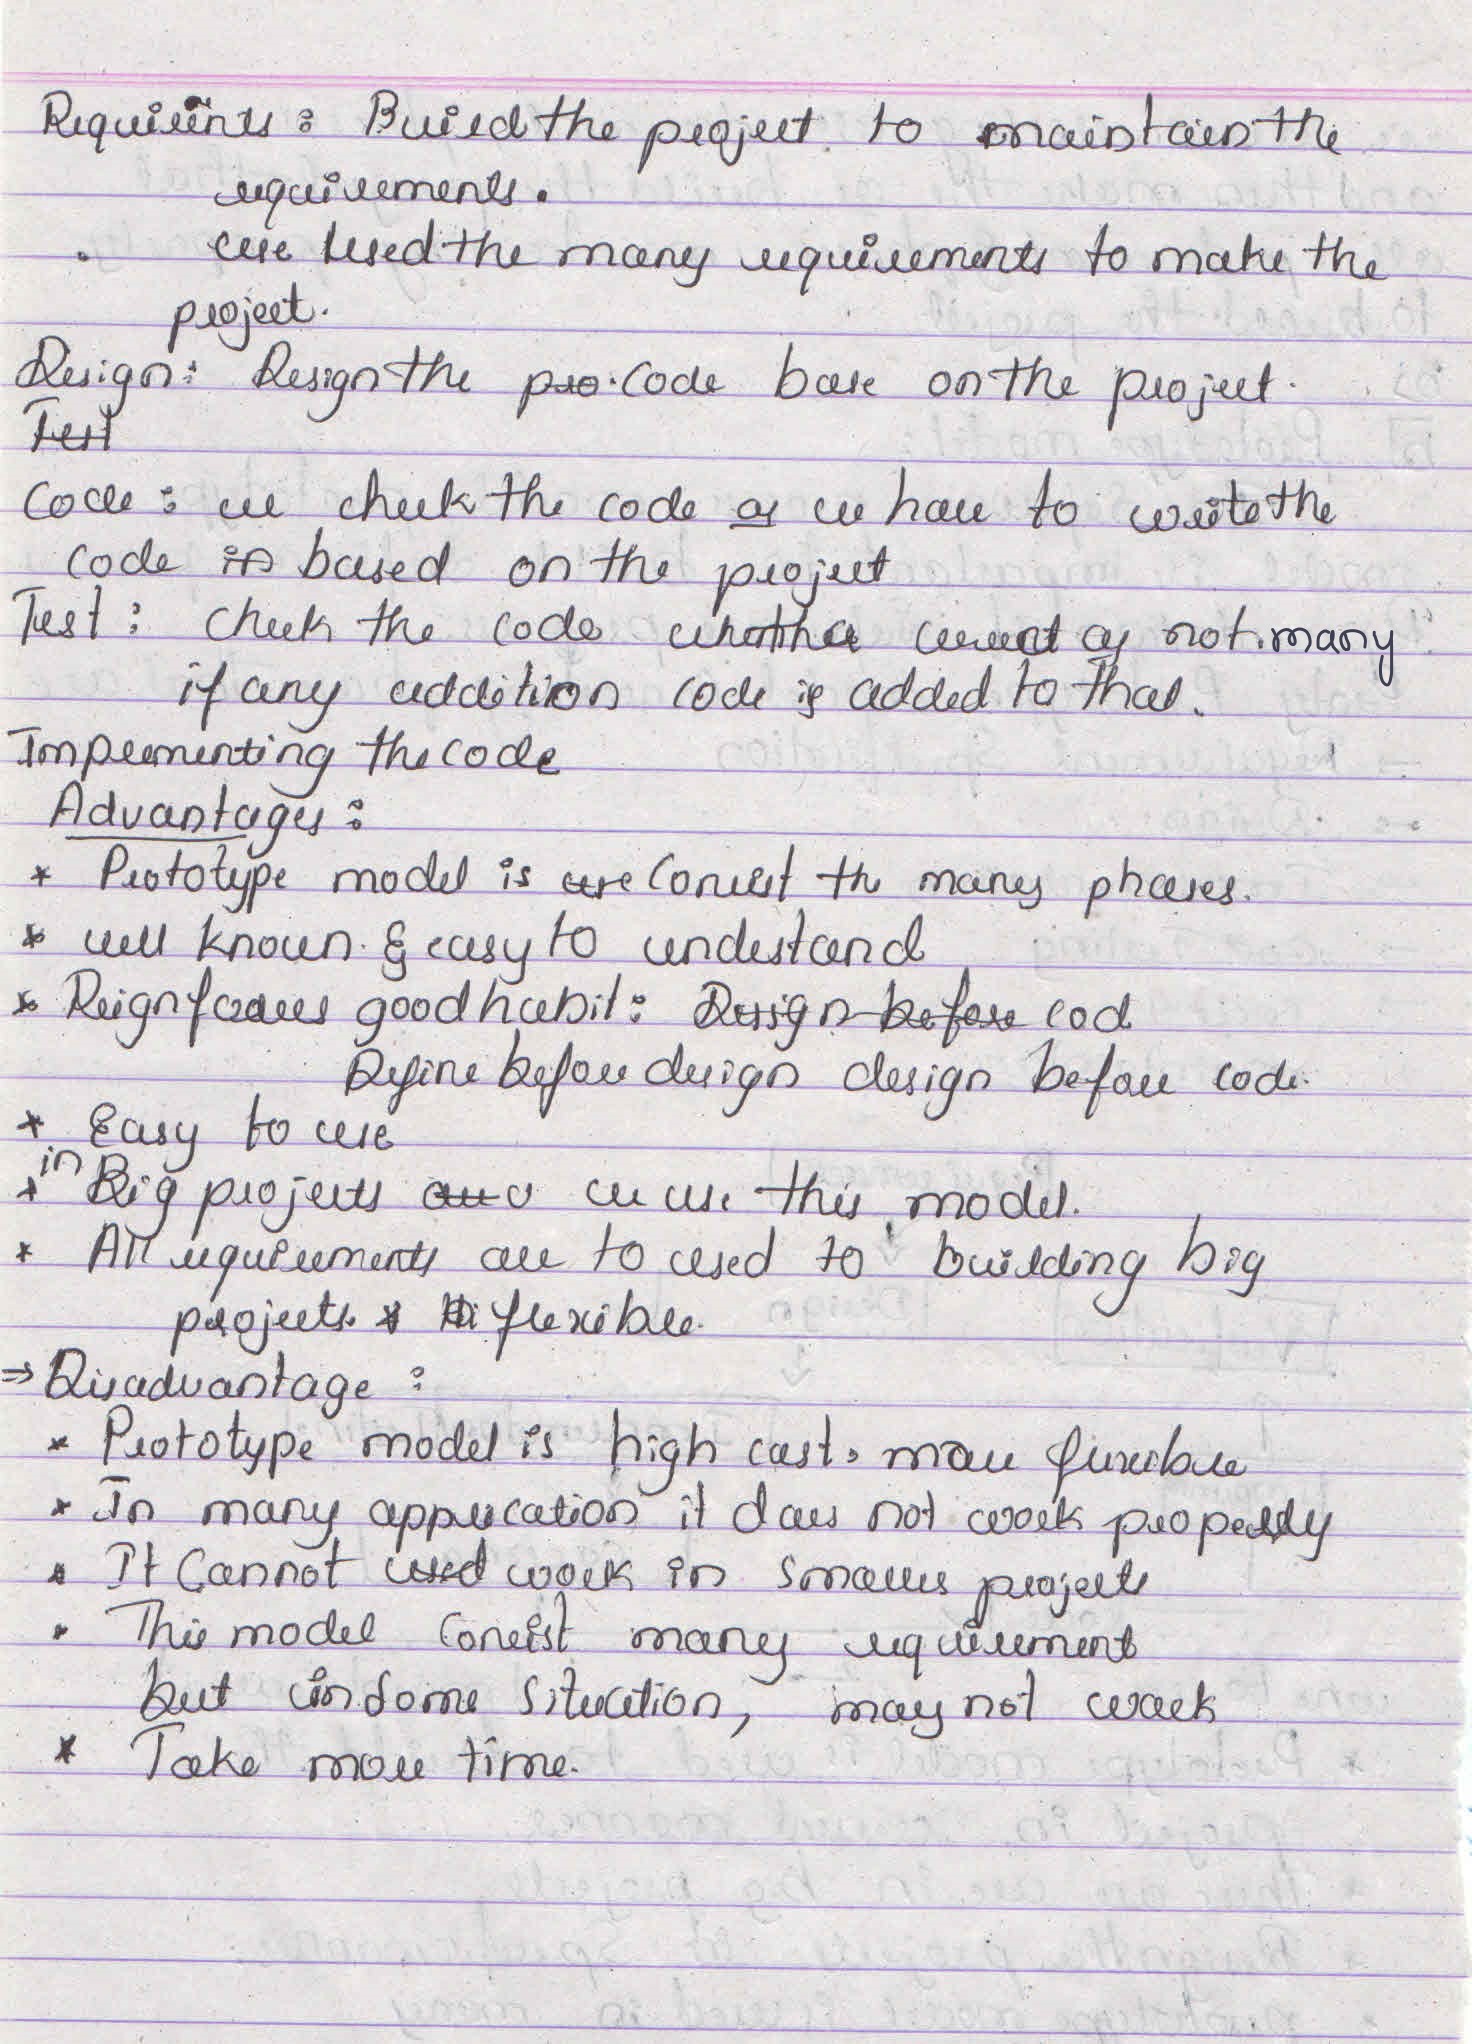 Requirēnts : Build the project to maintain the
requirements.
. use used the many requirements to make the
project.
Design : Design the pro. code base on the project.
Test
Code : we check the code as we have to write the
code in based on the project
Test : check the code whether correct or not. many
if any addition code is added to that.
Implementing the code
Advantages :
* Prototype model is use Consist the many phases.
* well known & easy to understand
* Reignforces good habit : Design before cod
Define before design design before code.
* Easy to use
* in Big projects we use this model.
* All requirements are to used to building big
projects. * flexible.
⇒ Disadvantage :
* Prototype model is high cast. more flexible
* In many application it does not work properly
* It Cannot used work in smaller projects
* This model Consist many requirement
but in some situation, may not work
* Take more time.